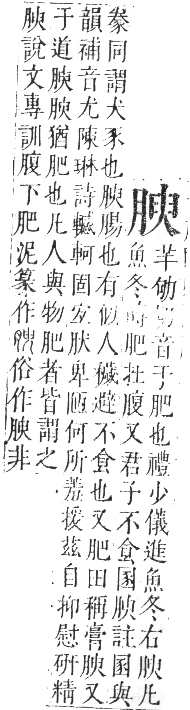 腴
羊劬切音于肥也禮少儀進魚冬右腴凡
魚冬時肥在腹又君子不食圂腴註圂與
豢同謂犬豕也腴腸也有似人穢避不食也又肥田稱膏腴又
韻補音尤陳琳詩轗軻固宜肰卑陋何所羞援茲自抑慰硏精
于道腴腴猶肥也凡人與物肥者皆謂之
腴說文專訓腹下肥泥篆作俗作腴非